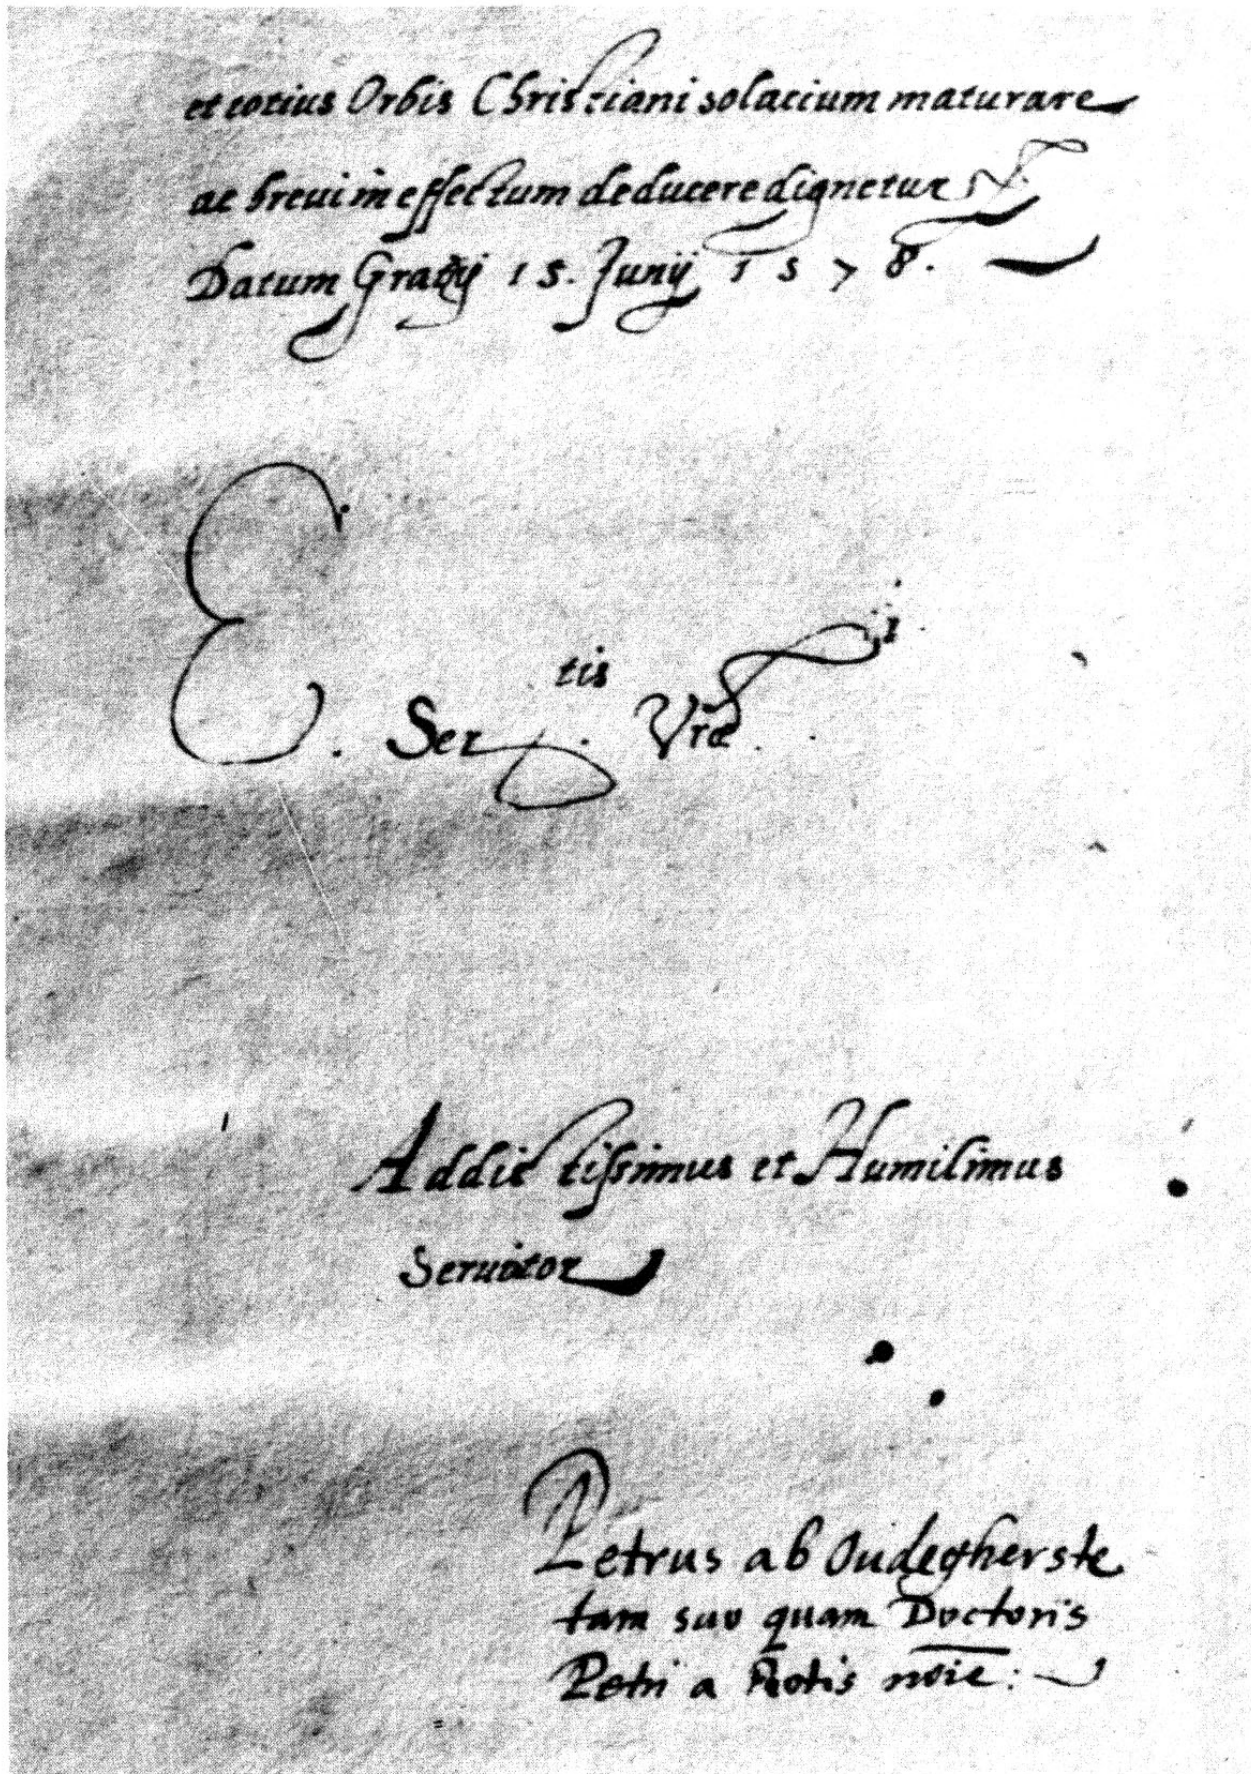 et totius Orbis Christiani solatium maturare
ac breui in effectum deducere dignetur
Datum Gratij 15. Junij 1578.
E. Ser.tis Vræ.
Addictissimus et Humilimus
Seruitor
Petrus ab Oudegherste
tam suo quam Doctoris
Petri a Rotis noie: